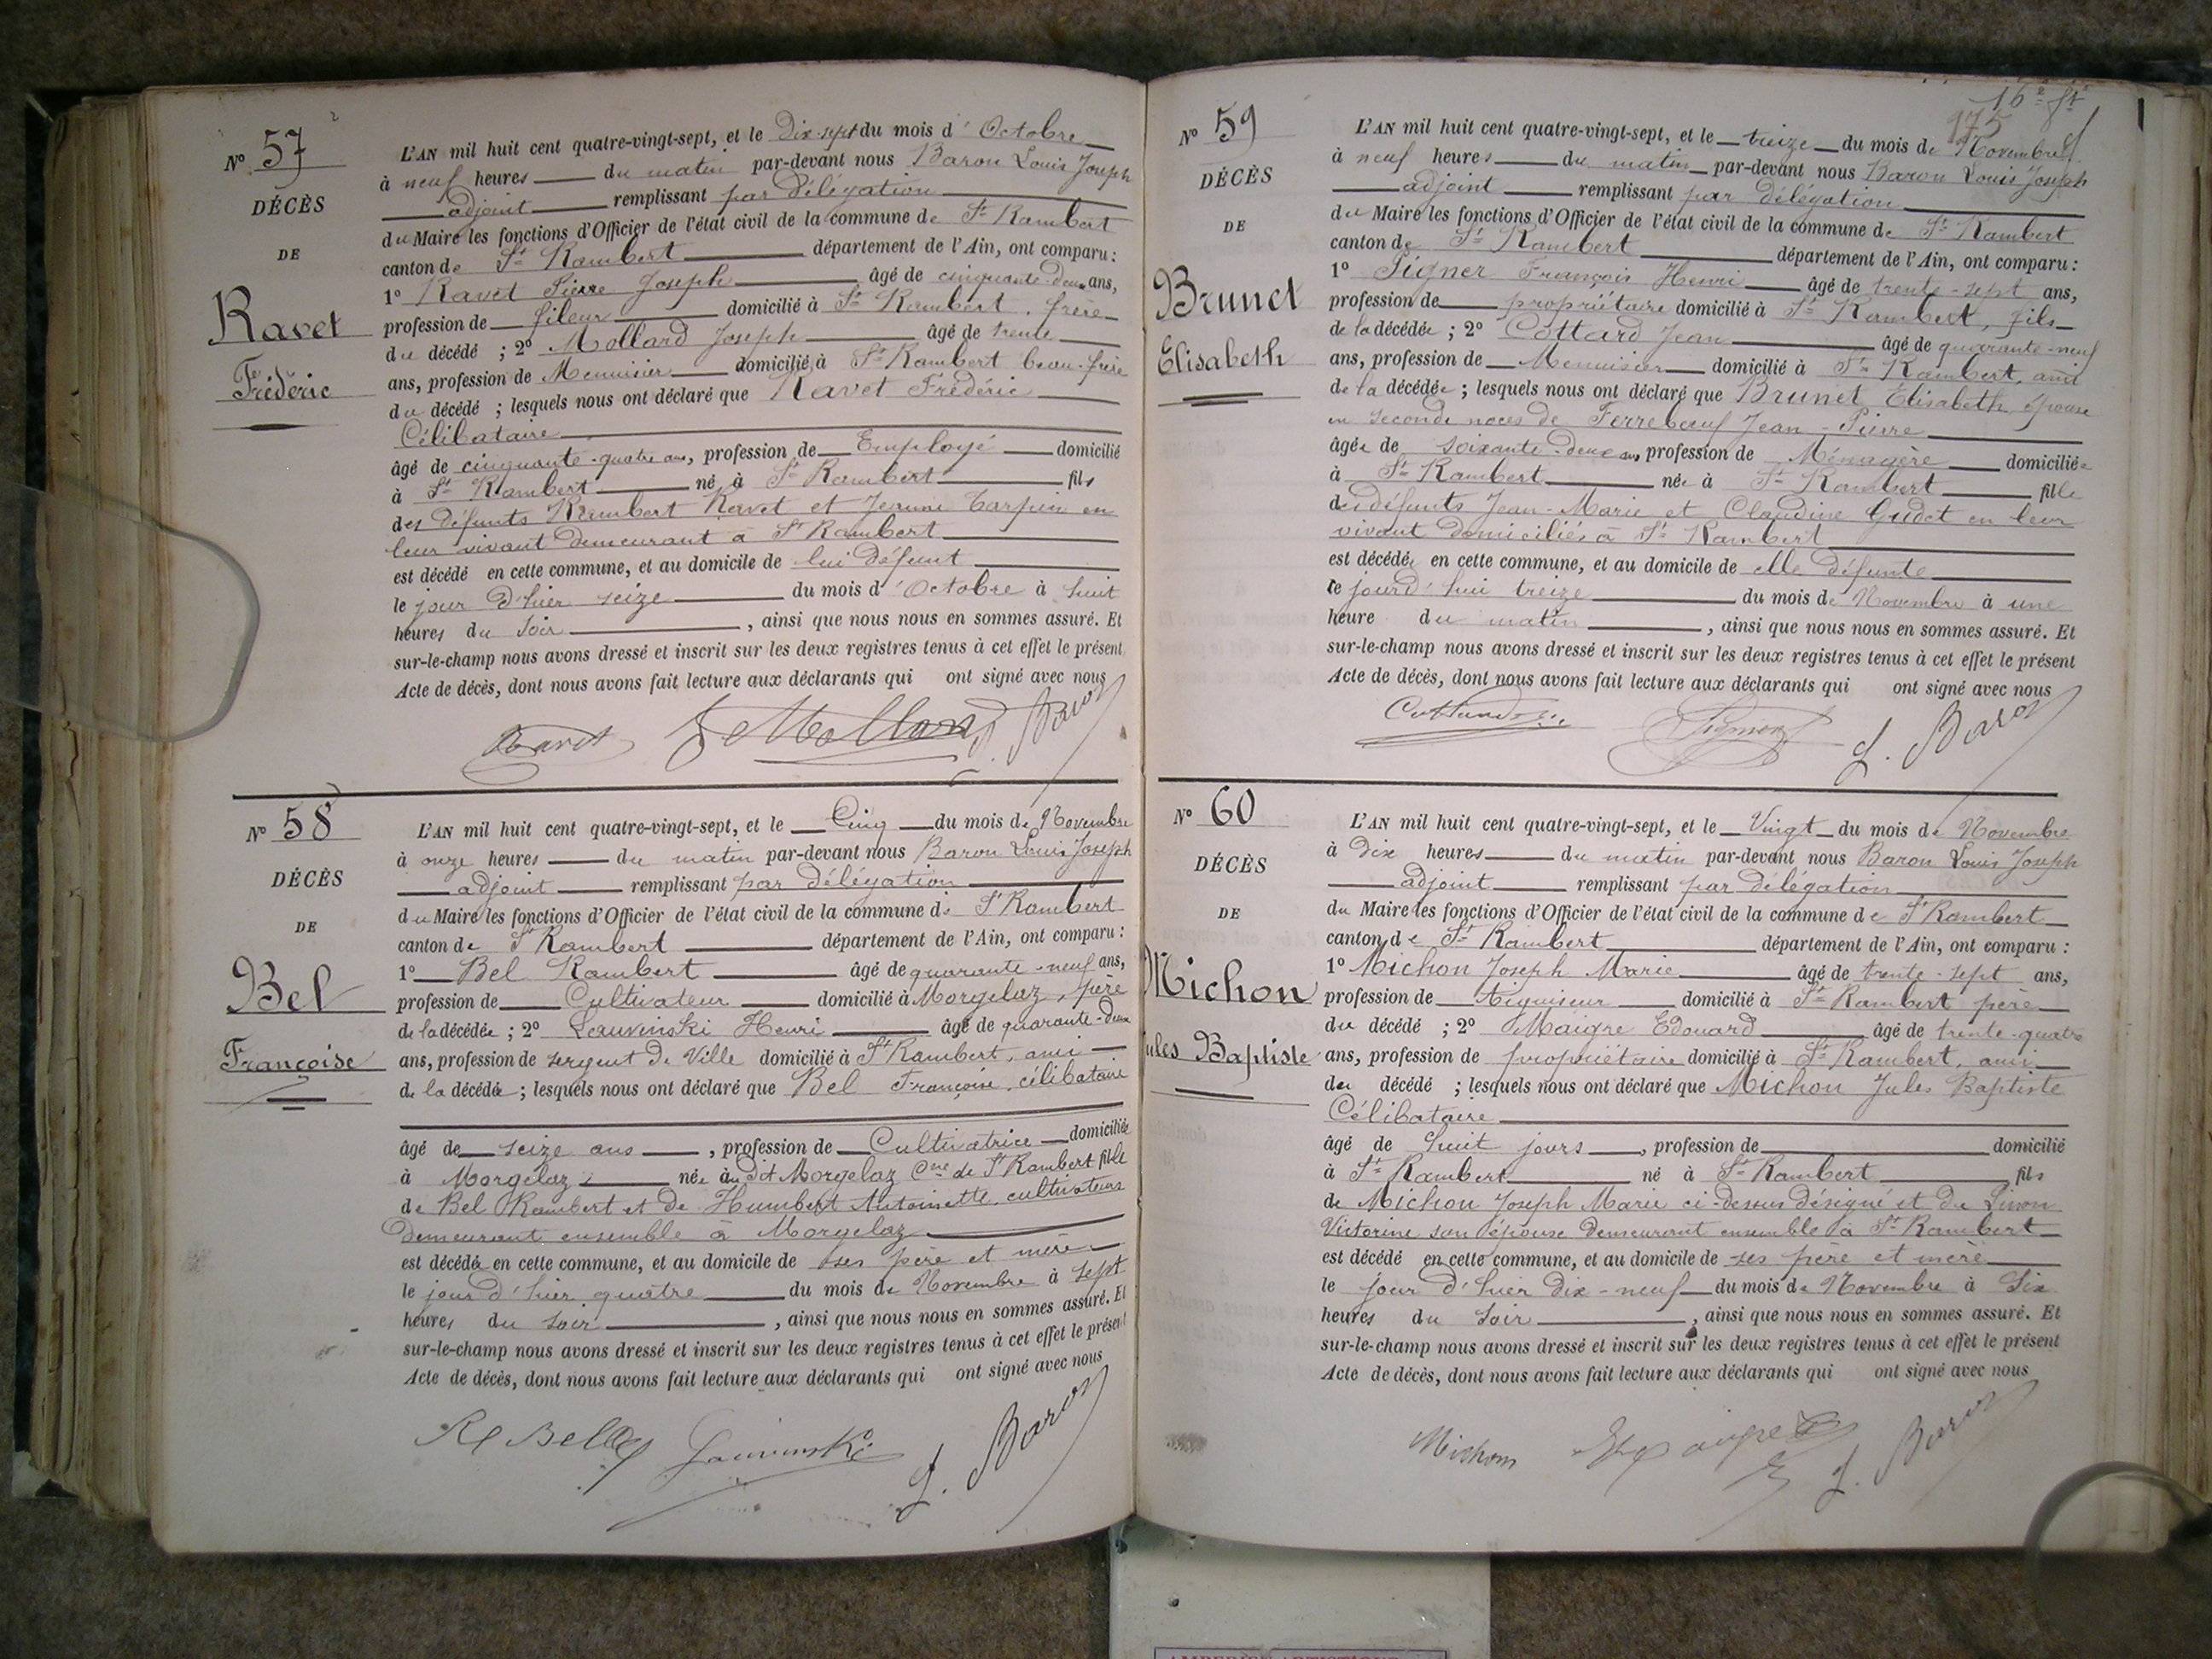 N° 57
DÉCÈS
DE
Ravet
Frédéric
L'AN mil huit cent quatre-vingt-sept, et le Dix-sept du mois d'Octobre
à neuf heures du matin par-devant nous Baron Louis Joseph
adjoint remplissant par délégation
du Maire les fonctions d'Officier de l'état civil de la commune de St Rambert
canton de St Rambert département de l'Ain, ont comparu :
1° Ravet Pierre Joseph âgé de cinquante-deux ans,
profession de fileur domicilié à St Rambert, frère
du décédé ; 2° Mollard Joseph âgé de trente
ans, profession de Menuisier domicilié à St Rambert beau-frère
du décédé ; lesquels nous ont déclaré que Ravet Frédéric
Célibataire
âgé de cinquante-quatre ans, profession de Employé domicilié
à St Rambert né à St Rambert fils
des défunts Rambert Ravet et Jeanne Carpin en
leur vivant demeurant à St Rambert
est décédé en cette commune, et au domicile de lui défunt
le jour d'hier seize du mois d'Octobre à huit
heures du soir, ainsi que nous nous en sommes assuré. Et
sur-le-champ nous avons dressé et inscrit sur les deux registres tenus à cet effet le présent
Acte de décès, dont nous avons fait lecture aux déclarants qui ont signé avec nous
Ravet J Mollard L. Baron
N° 58
DÉCÈS
DE
Bel
Françoise
L'AN mil huit cent quatre-vingt-sept, et le Cinq du mois de Novembre
à onze heures du matin par-devant nous Baron Louis Joseph
adjoint remplissant par délégation
du Maire les fonctions d'Officier de l'état civil de la commune de St Rambert
canton de St Rambert département de l'Ain, ont comparu :
1° Bel Rambert âgé de quarante-neuf ans,
profession de Cultivateur domicilié à Morgelaz, père
de la décédée ; 2° Lauvinski Henri âgé de quarante-deux
ans, profession de sergent de Ville domicilié à St Rambert, ami
de la décédée ; lesquels nous ont déclaré que Bel Françoise, célibataire
âgé de seize ans, profession de Cultivatrice domiciliée
à Morgelaz née au dit Morgelaz Cne de St Rambert fille
de Bel Rambert et de Humbert Antoinette, cultivateurs
demeurant ensemble à Morgelaz
est décédée en cette commune, et au domicile de ses père et mère
le jour d'hier quatre du mois de Novembre à sept
heures du soir, ainsi que nous nous en sommes assuré. Et
sur-le-champ nous avons dressé et inscrit sur les deux registres tenus à cet effet le présent
Acte de décès, dont nous avons fait lecture aux déclarants qui ont signé avec nous
L. Baron
16e ft
175
N° 59
DÉCÈS
DE
Brunet
Elisabeth
L'AN mil huit cent quatre-vingt-sept, et le treize du mois de Novembre
à neuf heures du matin par-devant nous Baron Louis Joseph
adjoint remplissant par délégation
du Maire les fonctions d'Officier de l'état civil de la commune de St Rambert
canton de St Rambert département de l'Ain, ont comparu :
1° Signer François Henri âgé de trente-sept ans,
profession de propriétaire domicilié à St Rambert, fils
de la décédée ; 2° Cottard Jean âgé de quarante-neuf
ans, profession de Menuisier domicilié à St Rambert, ami
de la décédée ; lesquels nous ont déclaré que Brunet Elisabeth, épouse
en seconde noces de Ferrebœuf Jean-Pierre
âgée de soixante-deux ans, profession de Ménagère domiciliée
à St Rambert née à St Rambert fille
des défunts Jean-Marie et Claudine Gudet en leur
vivant domiciliés à St Rambert
est décédée en cette commune, et au domicile de elle défunte
le jourd'hui treize du mois de Novembre à une
heure du matin, ainsi que nous nous en sommes assuré. Et
sur-le-champ nous avons dressé et inscrit sur les deux registres tenus à cet effet le présent
Acte de décès, dont nous avons fait lecture aux déclarants qui ont signé avec nous
L. Baron
N° 60
DÉCÈS
DE
Michon
Jules Baptiste
L'AN mil huit cent quatre-vingt-sept, et le Vingt du mois de Novembre
à Dix heures du matin par-devant nous Baron Louis Joseph
adjoint remplissant par délégation
du Maire les fonctions d'Officier de l'état civil de la commune de St Rambert
canton de St Rambert département de l'Ain, ont comparu :
1° Michon Joseph Marie âgé de trente-sept ans,
profession de Aiguiseur domicilié à St Rambert père
du décédé ; 2° Maigre Edouard âgé de trente-quatre
ans, profession de propriétaire domicilié à St Rambert, ami
du décédé ; lesquels nous ont déclaré que Michon Jules Baptiste
Célibataire
âgé de huit jours, profession de domicilié
à St Rambert né à St Rambert fils
de Michon Joseph Marie ci-dessus désigné et de Livon
Victorine son épouse demeurant ensemble à St Rambert
est décédé en cette commune, et au domicile de ses père et mère
le jour d'hier dix-neuf du mois de Novembre à Six
heures du soir, ainsi que nous nous en sommes assuré. Et
sur-le-champ nous avons dressé et inscrit sur les deux registres tenus à cet effet le présent
Acte de décès, dont nous avons fait lecture aux déclarants qui ont signé avec nous
Michon L. Baron